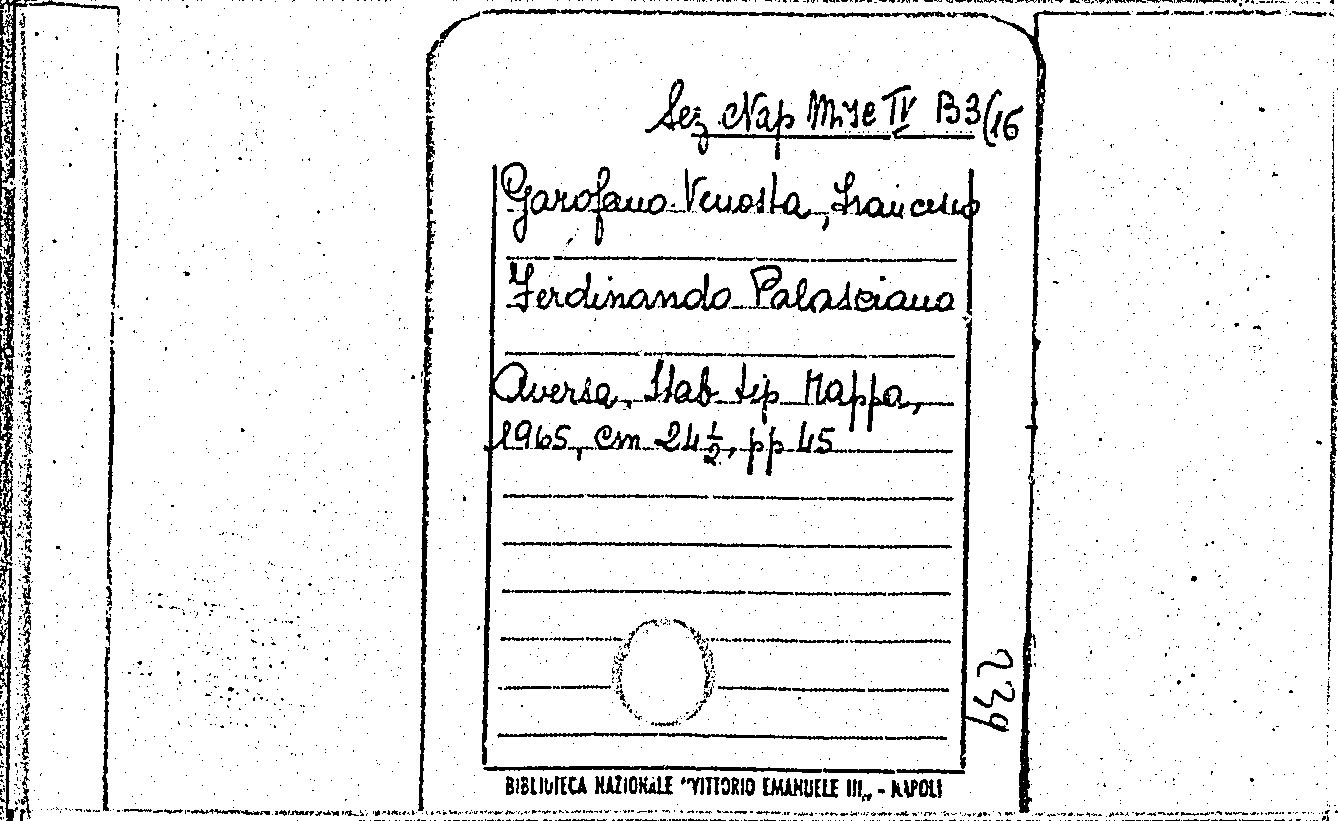 Sez Nap Misc IV B3(16
Garofano Venosta, Francesco
Ferdinando Palasciano
Aversa, Stab tip Nappa,
1965, cm 24 1/2, pp 45
239
BIBLIOTECA NAZIONALE "VITTORIO EMANUELE III„ - NAPOLI